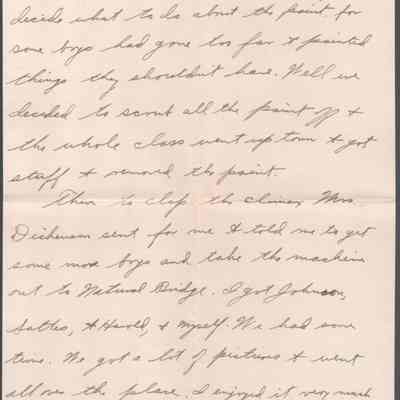 decide what to do about the paint. for
some boys had gone too far & painted
things they shouldn't have. Well we
decided to scout all the paint off &
the whole class went up town & got
stuff & removed the paint.
Then to clap the climax Mrs.
Dickenson sent for me & told me to get
some more boys and take the machine
out to Natural Bridge. I got Johnson,
& Harold, & myself. We had some
time. We got a lot of pictures & went
all over the place. I enjoyed it very much